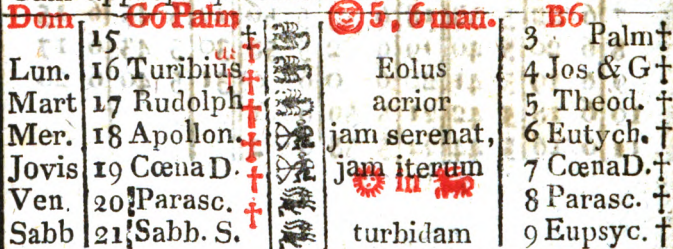 Dom G6 Palm 5, 6 man. B6
15 † 3 Palm †
Lun. 16 Turibius † Eolus 4 Jos & G †
Mart 17 Rudolph † acrior 5 Theod. †
Mer. 18 Apollon. † jam serenat, 6 Eutych. †
Jovis 19 Cœna D. † jam iterum 7 CœnaD. †
in
Ven. 20 Parasc. 8 Parasc. †
Sabb 21 Sabb. S. † turbidam 9 Eupsyc. †